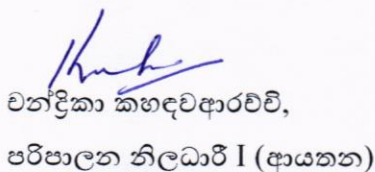 චන්ද්‍රිකා කහඳවආරච්චි,
පරිපාලන නිලධාරී I (ආයතන)